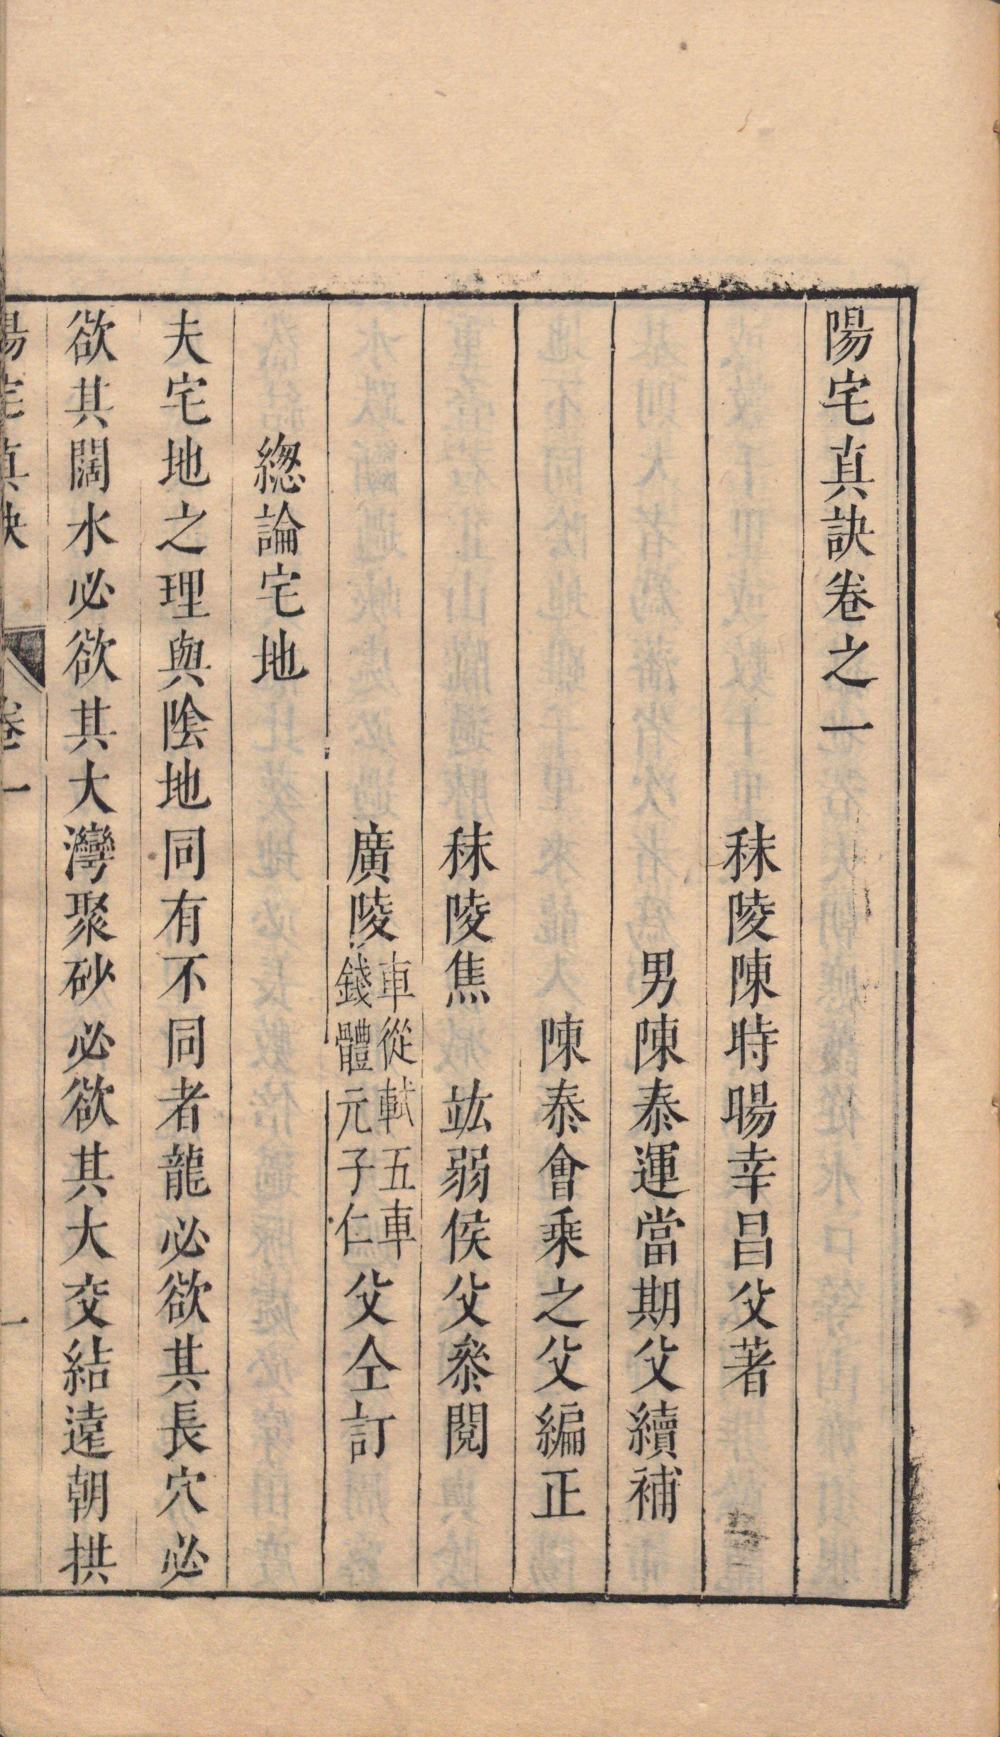 陽宅真訣卷之一
秣陵陳時暘幸昌父著
男陳泰運當期父續補
陳泰會乘之父編正
秣陵焦竑弱侯父叅閱
廣陵車從軾五車錢體元子仁父仝訂
緫論宅地
夫宅地之理與陰地同有不同者龍必欲其長穴必
欲其闊水必欲其大灣聚砂必欲其大交結遠朝拱
陽宅真訣 卷一 一